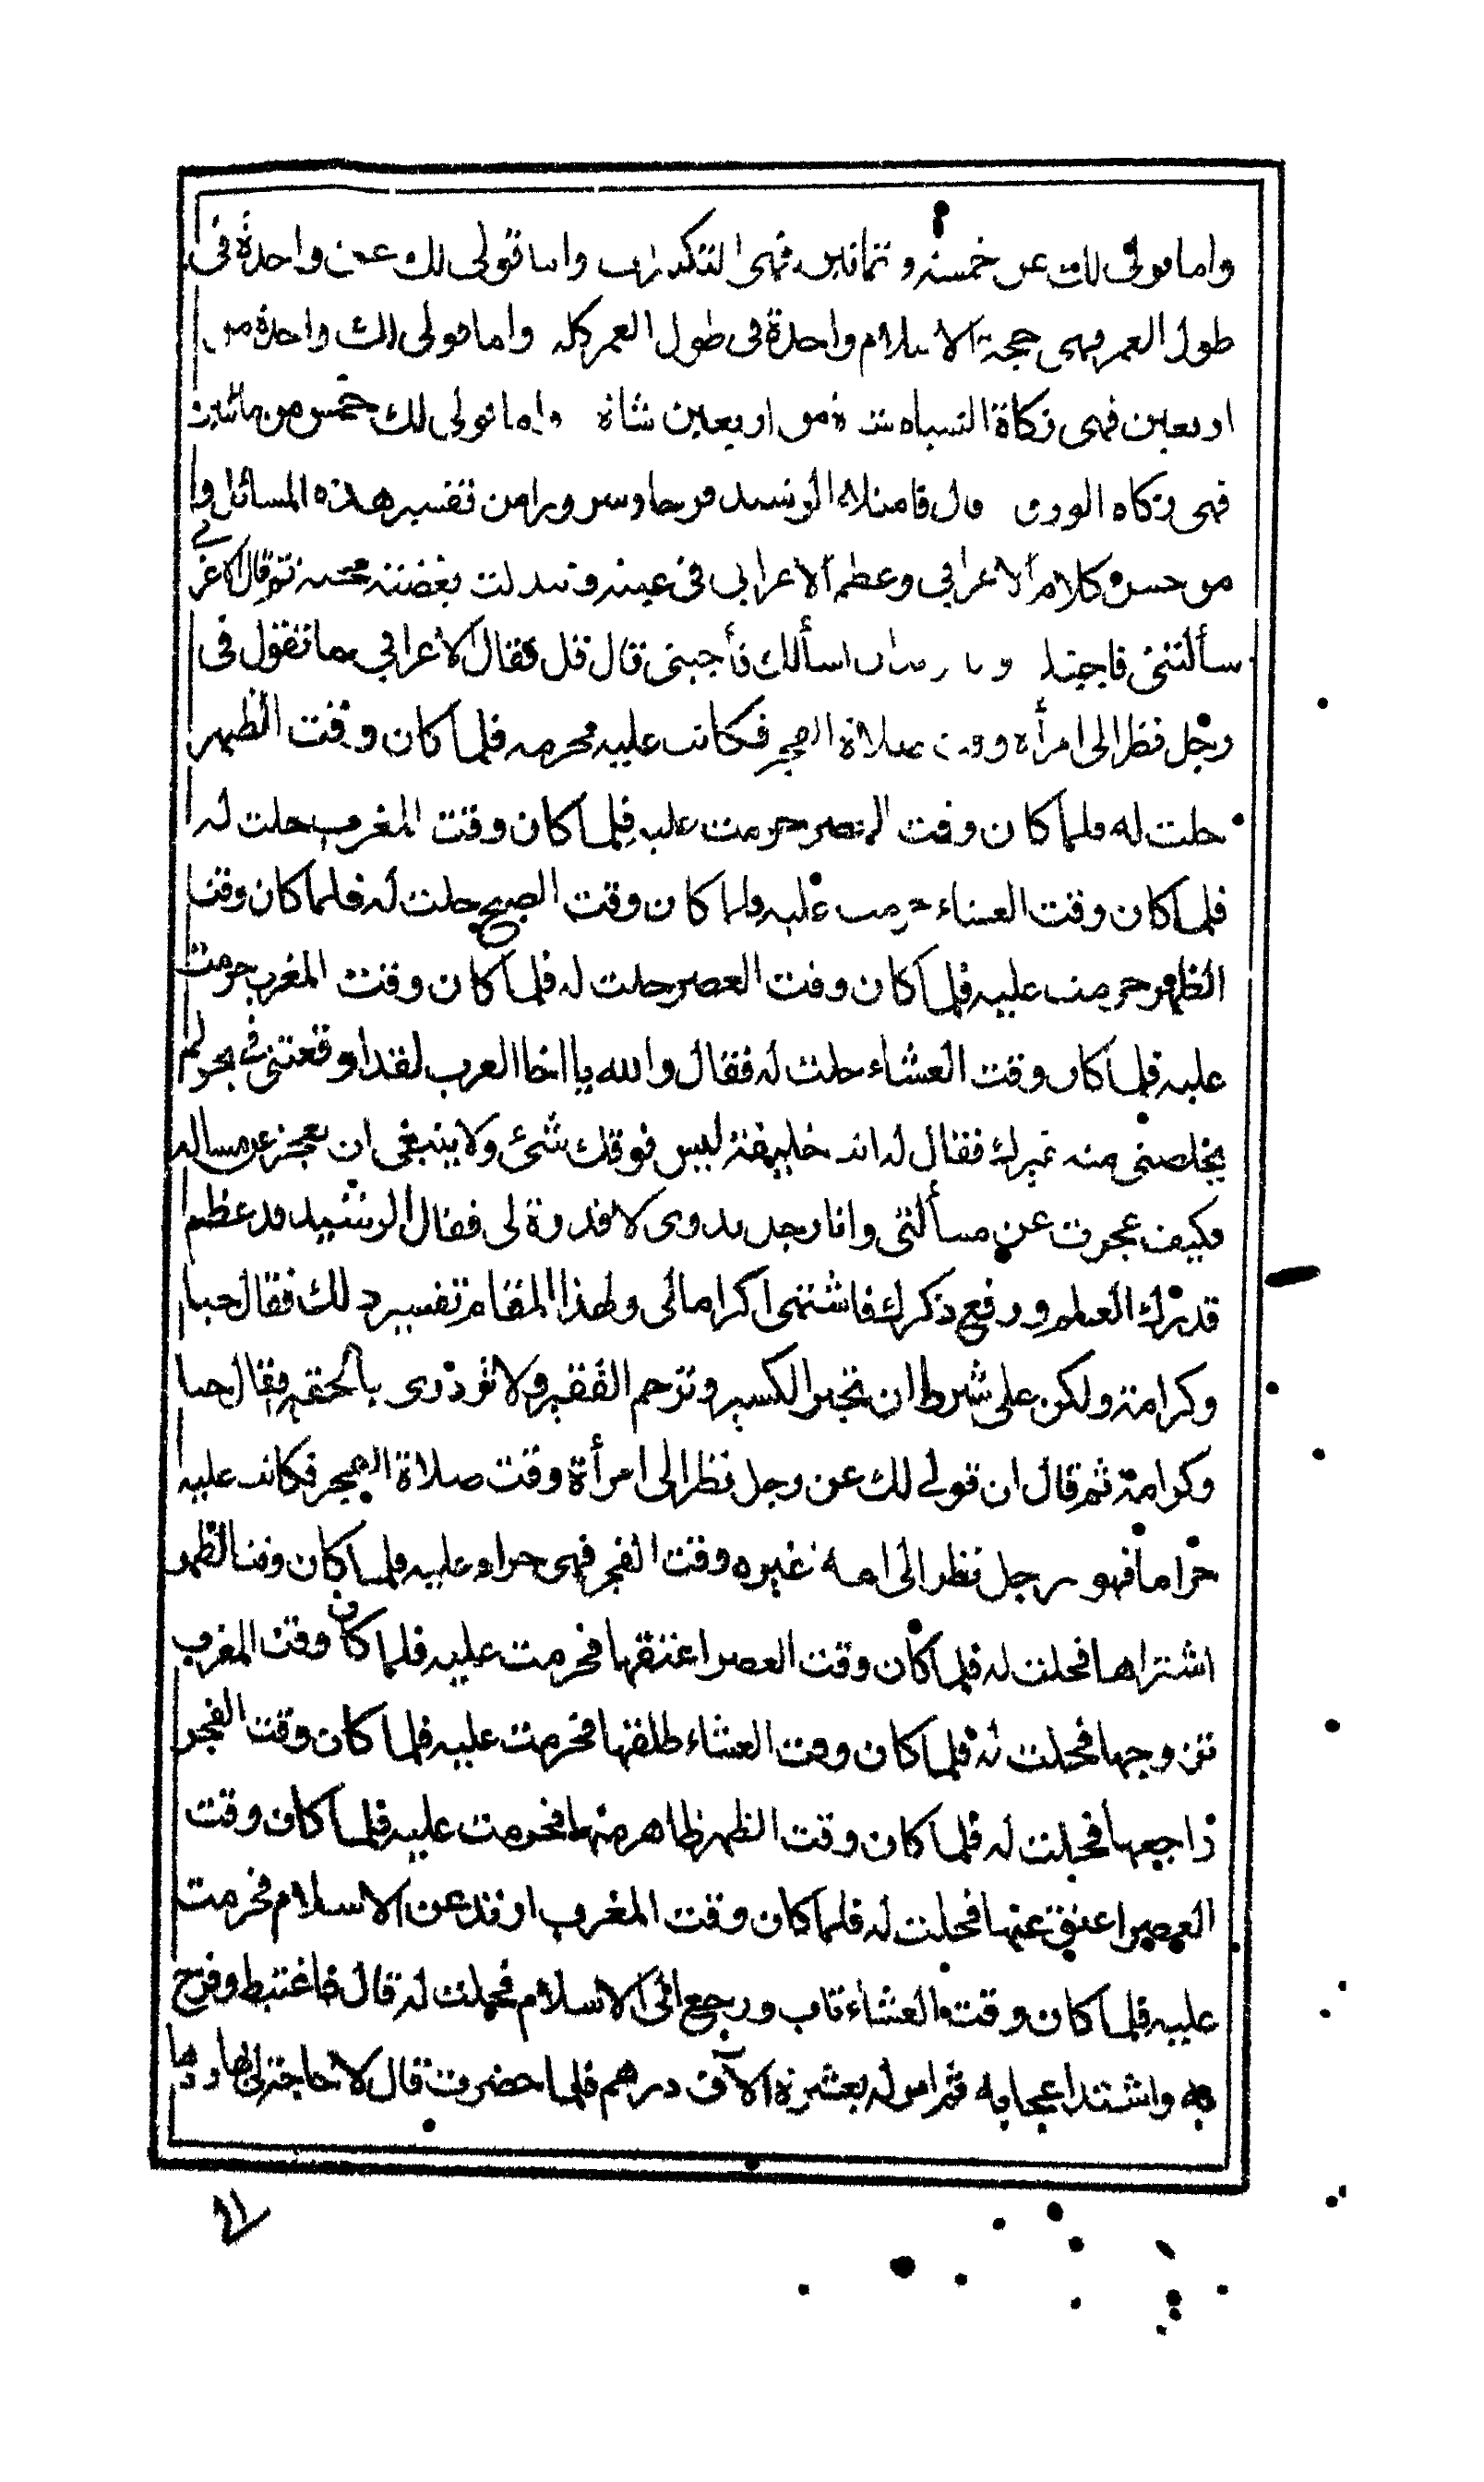 واما قولى لك عن خمسة وثمانين فهى التكبيرات واما قولى لك عن واحدة فى
طول العمر فهى حجة الاسلام واحدة فى طول العمر كله واما قولى لك واحدة من
اربعين فهى زكاة الشياه شاة من اربعين شاة واما قولى لك خمس من مائتين
فهى زكاة الورق قال فامتلاء الرشيد فرحا وسرورا من تفسير هذه المسائل و
من حسن كلام الاعرابي وعظم الاعرابي فى عينه وتبدلت بغضته محبة ثم قال الاعرابي
سألتنى فاجبتك وانا اريد ان اسألك فأجبنى قال قل فقال الاعرابي ما تقول فى
رجل نظر الى امرأة وقت صلاة الفجر فكانت عليه محرمه فلما كان وقت الظهر
حلت له فلما كان وقت العصر حرمت عليه فلما كان وقت المغرب حلت له
فلما كان وقت العشاء حرمت عليه فلما كان وقت الصبح حلت له فلما كان وقت
الظهر حرمت عليه فلما كان وقت العصر حلت له فلما كان وقت المغرب حرمت
عليه فلما كان وقت العشاء حلت له فقال والله يا اخا العرب لقد اوقعتنى فى بحر لم
يخلصنى منه غيرك فقال له انت خليفة ليس فوقك شئ ولا ينبغى ان تعجز عن مسالة
فكيف عجزت عن مسألتى وانا رجل بدوى لا قدرة لى فقال الرشيد قد عظم
قدرك العلم ورفع ذكرك فاشتهى اكراما لى ولهذا المقام تفسير ذلك فقال حبا
وكرامة ولكن على شرط ان تجبر الكسير وترحم الفقير ولا تزدرى بالحقير فقال حبا
وكرامة ثم قال ان قولى لك عن رجل نظر الى امرأة وقت صلاة الفجر فكانت عليه
حراما فهو رجل نظر الى امة غيره وقت الفجر فهى حرام عليه فلما كان وقت الظهر
اشتراها فحلت له فلما كان وقت العصر اعتقها فحرمت عليه فلما كان وقت المغرب
تزوجها فحلت له فلما كان وقت العشاء طلقها فحرمت عليه فلما كان وقت الفجر
راجعها فحلت له فلما كان وقت الظهر ظاهر منها فحرمت عليه فلما كان وقت
العصر اعتق عنها فحلت له فلما كان وقت المغرب ارتد عن الاسلام فحرمت
عليه فلما كان وقت العشاء تاب ورجع الى الاسلام فحلت له قال فاغتبط وفرح
به واشتد اعجابه ثم امر له بعشرة الآف درهم فلما حضرت قال لا حاجة لى بها ردها